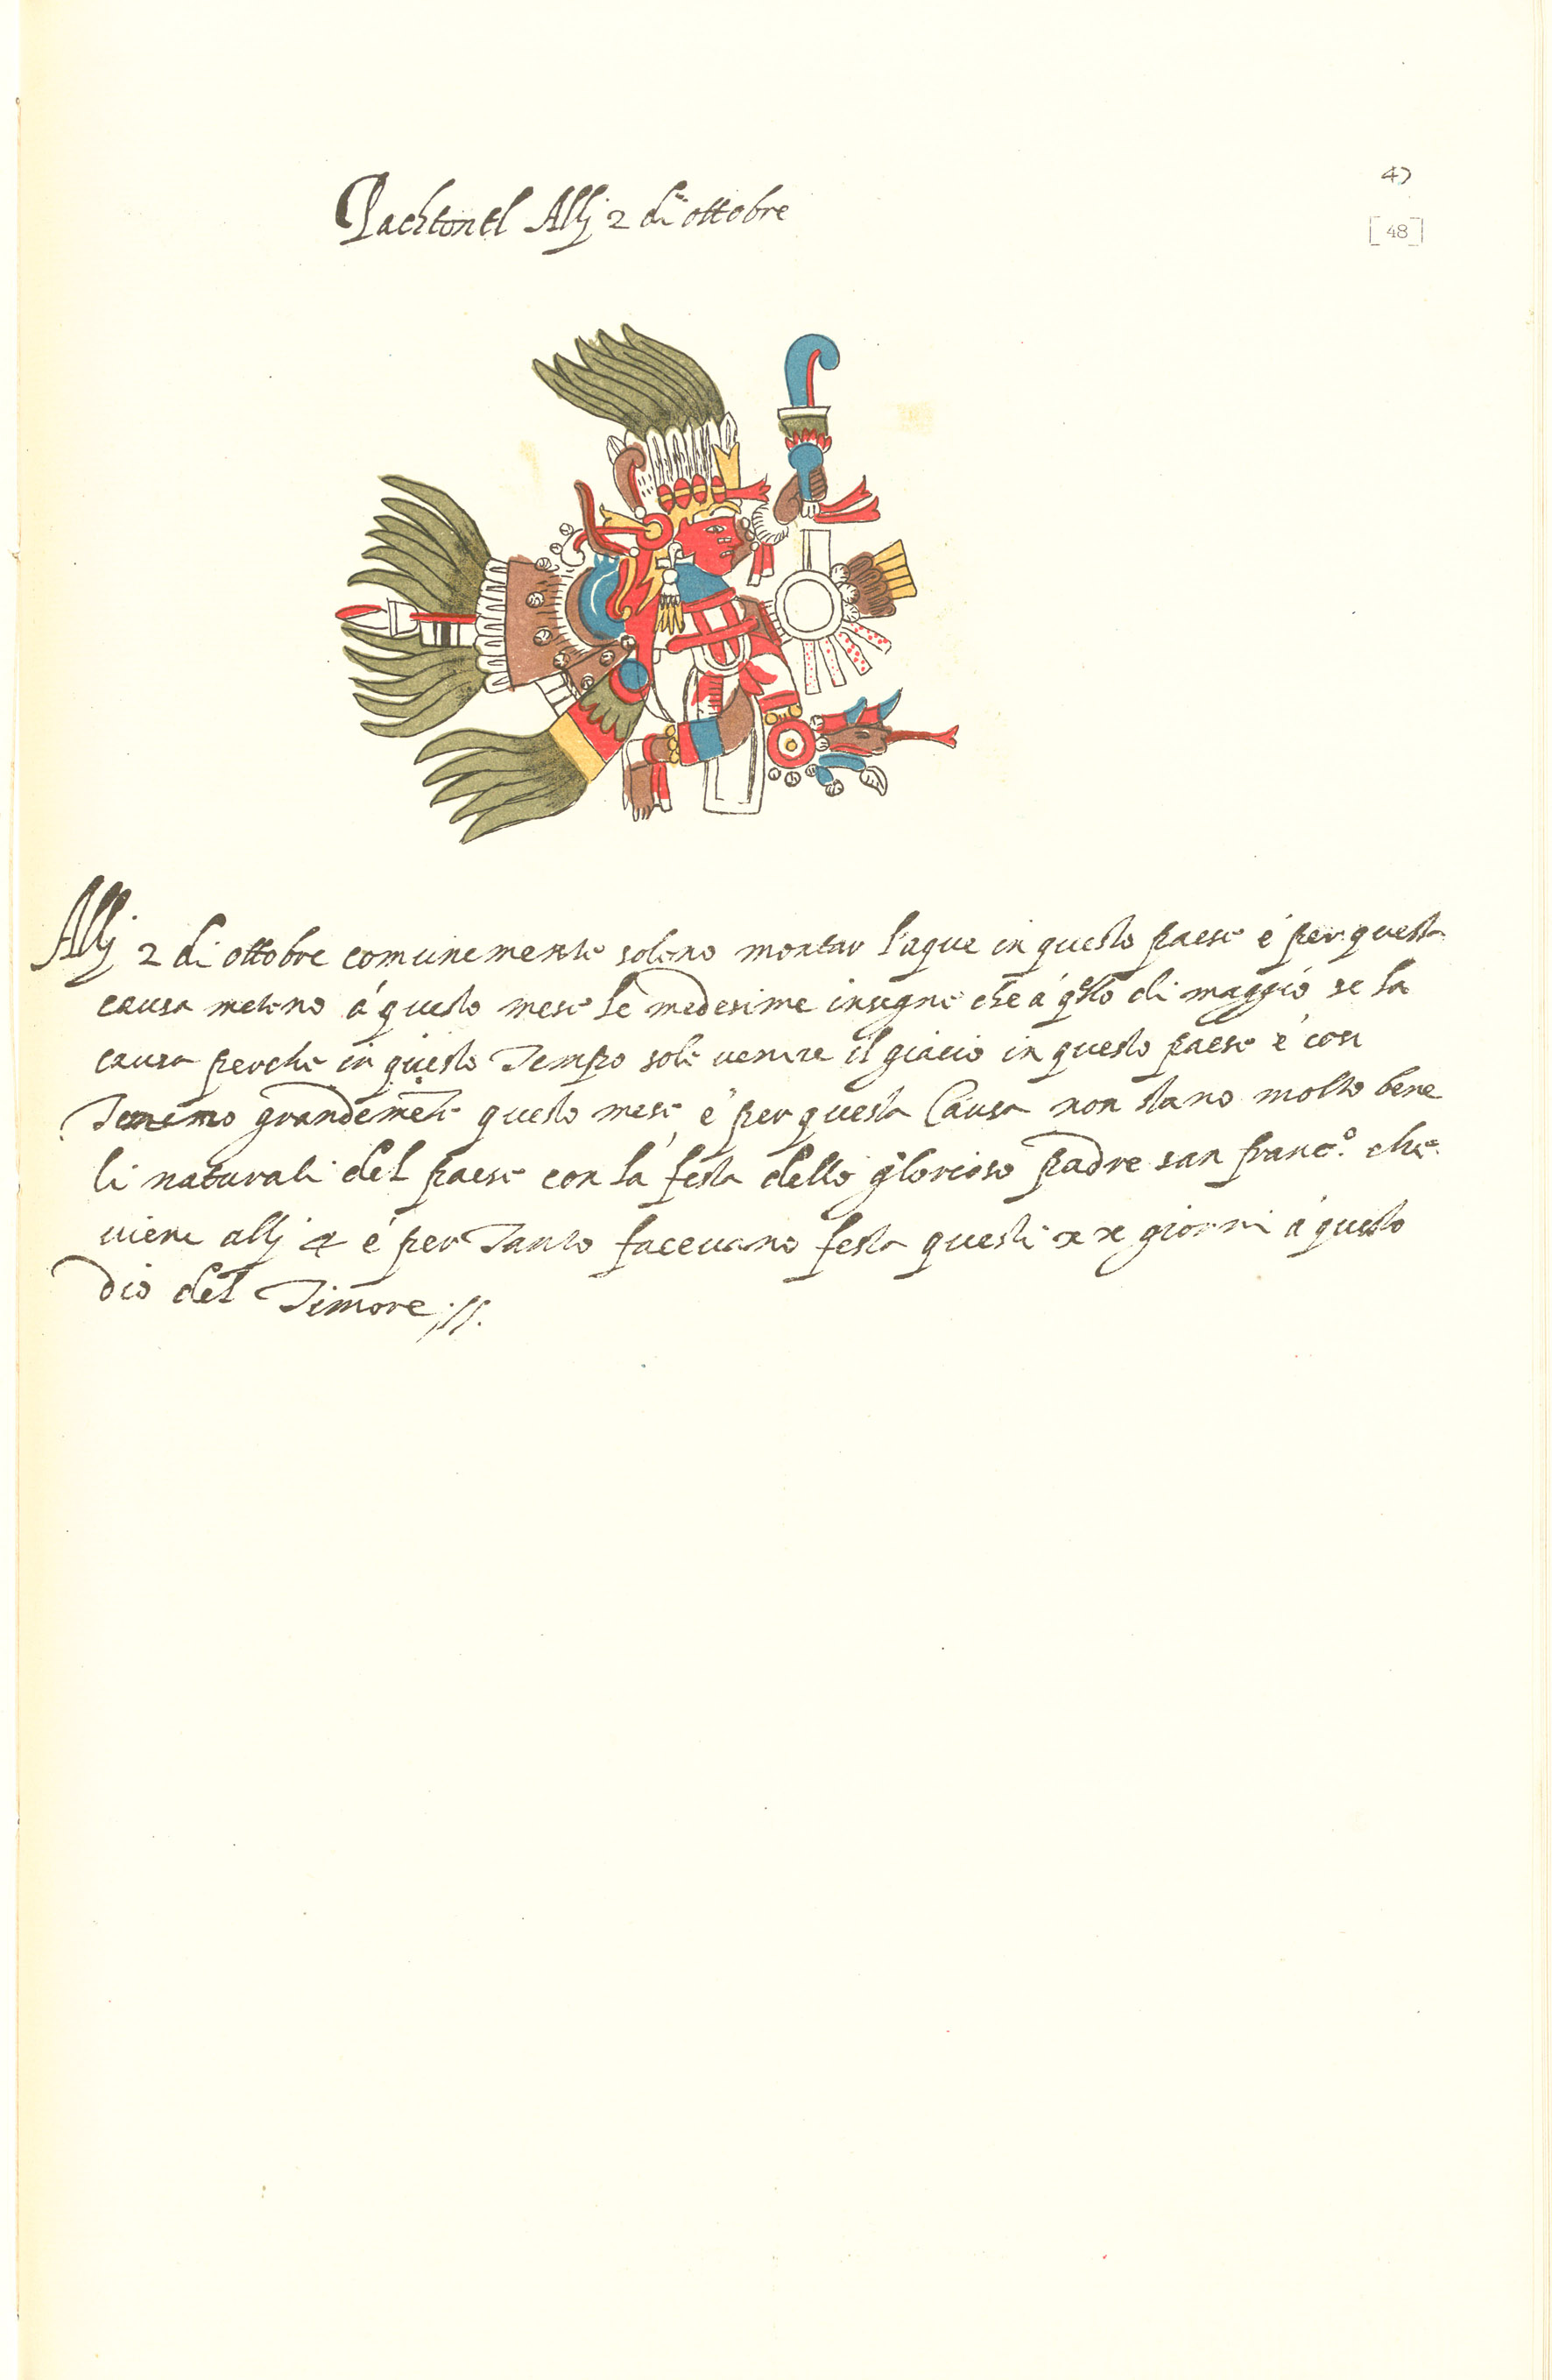 Pachtontl Allj 2 di ottobre
47
[48]
Allj 2 di ottobre comunemente soleno montar l'aque in questo paese é per questa
causa meteno á questo mese le medesime insegne che á qsto di maggio se la
causa perche in questo Tempo sole venire il giacio in questo paese é cosi
Temeno grandemēte questo mese é per questa Causa non stano molto bene
li naturali del paese con la festa dello glorioso padre san franc.º che
viene allj 4 é per Tanto facevano festa questi xx giorni á questo
dio del Timore://.